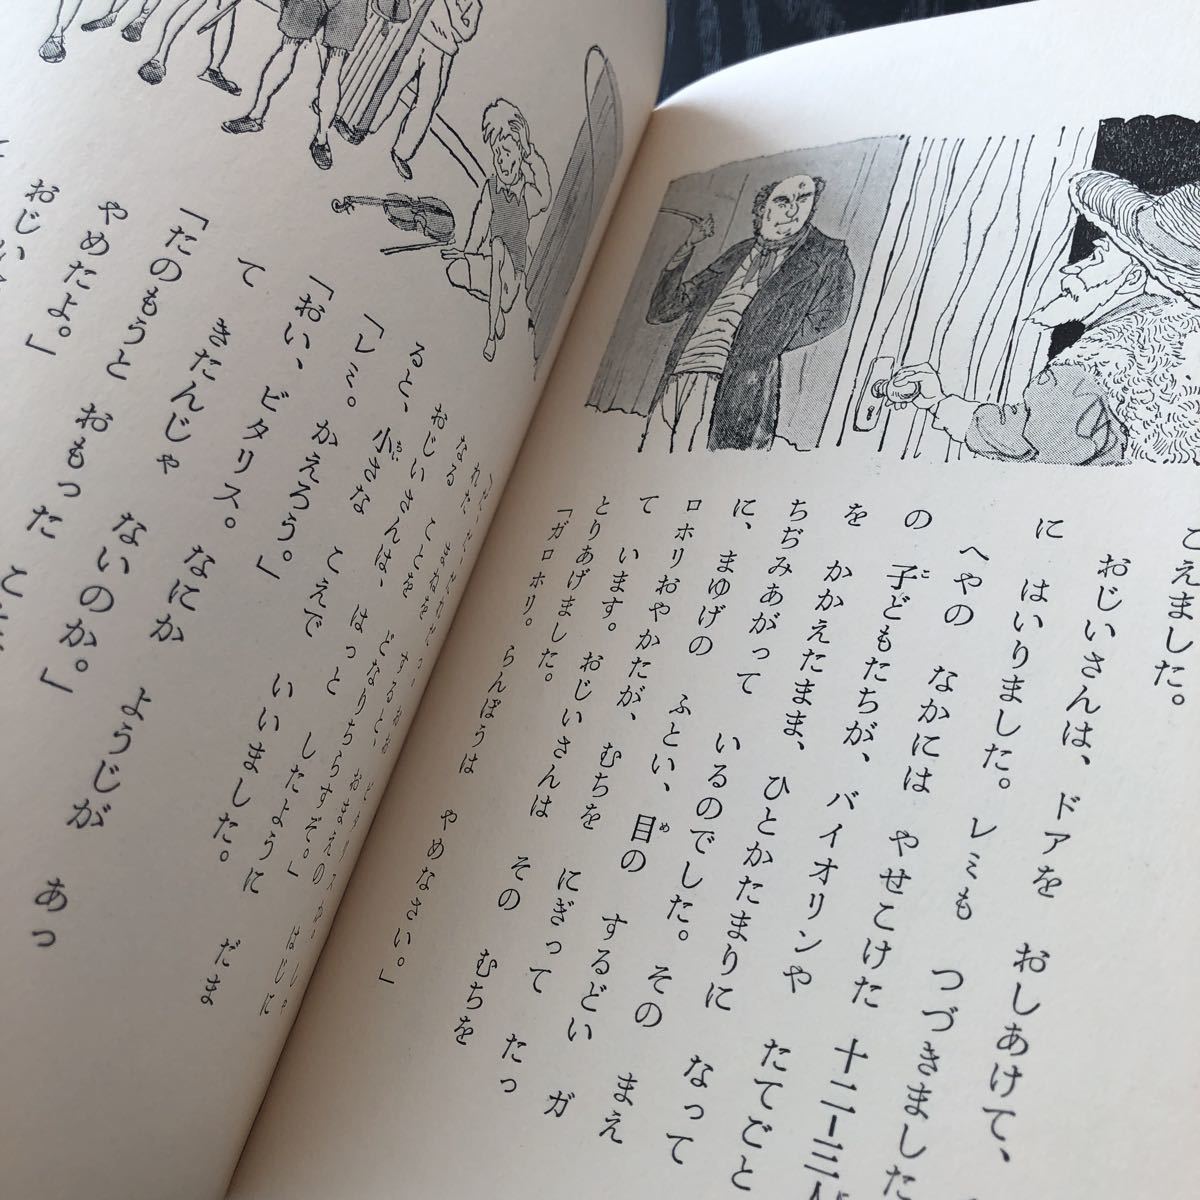 こえました。
おじいさんは、ドアを おしあけて、
に はいりました。レミも つづきました
へやの なかには やせこけた 十二—三人
の 子どもたちが、バイオリンや たてごと
を かかえたまま、ひとかたまりに なって
ちぢみあがって いるのでした。その まえ
に、まゆげの ふとい、目の するどい ガ
ロホリおやかたが、むちを にぎって たっ
て います。おじいさんは その むちを
とりあげました。
「ガロホリ。らんぼうは やめなさい。」
なる ことを どなりちらすぞ。」
おじいさんは、はっと したように だま
ると、小さな こえで いいました。
「レミ。かえろう。」
「おい、ビタリス。なにか ようじが あっ
て きたんじゃ ないのか。」
「たのもうと おもった
やめたよ。」